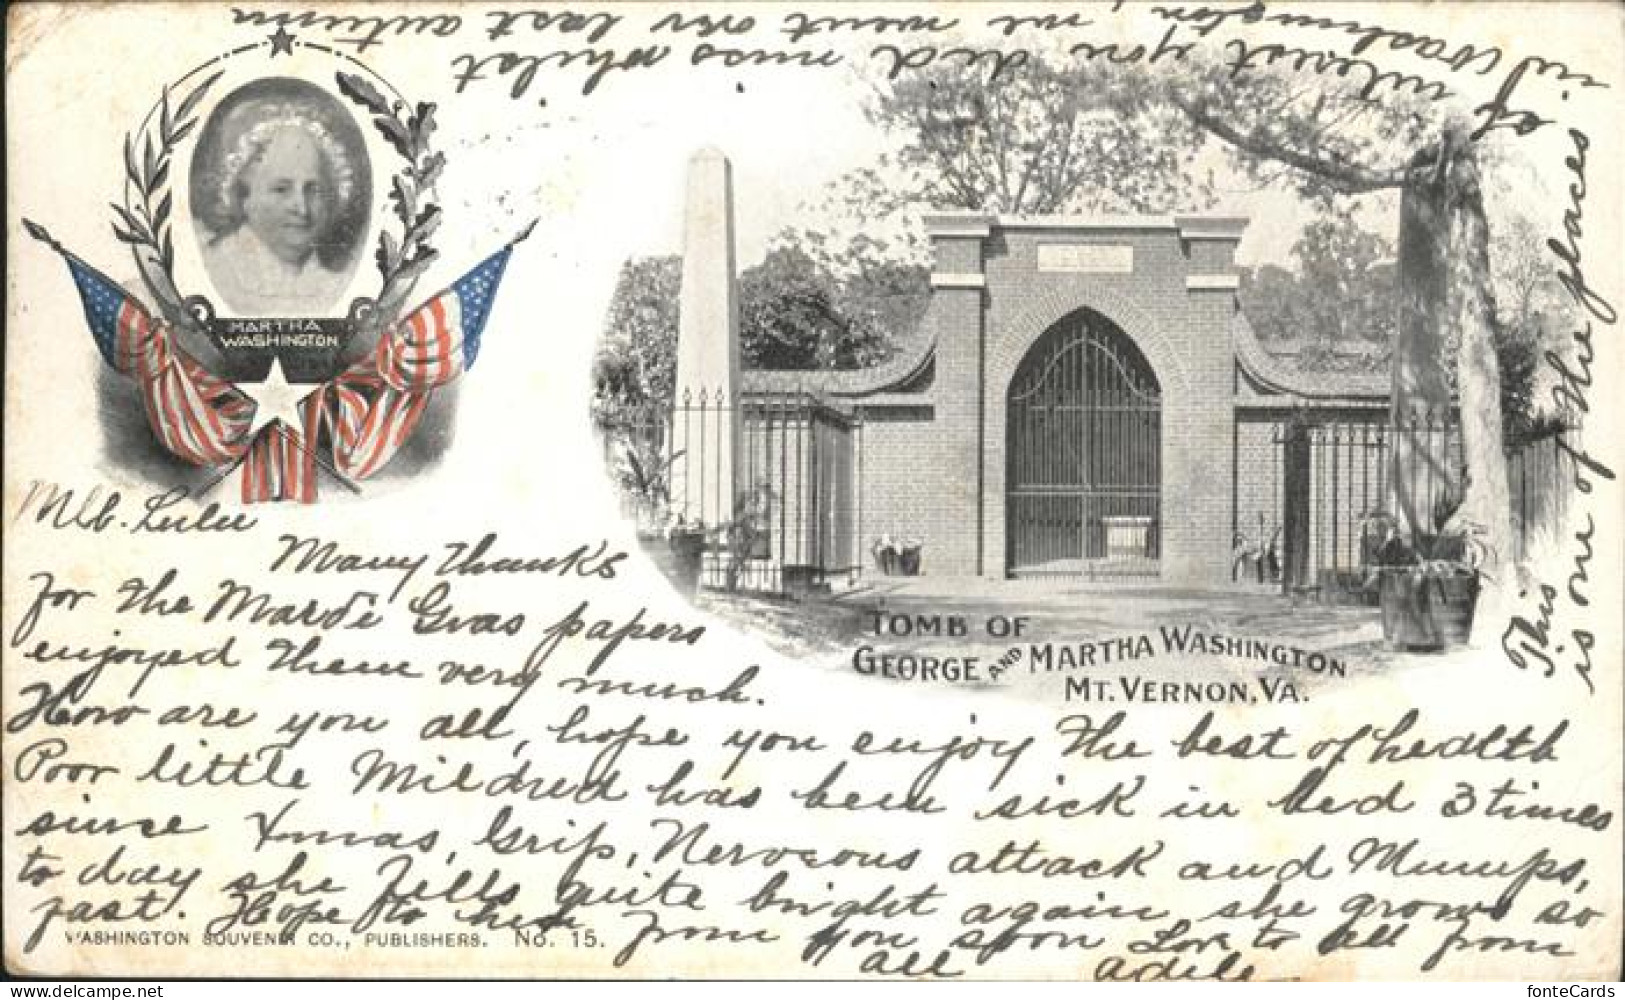 MARTHA
WASHINGTON
TOMB OF
GEORGE AND MARTHA WASHINGTON
MT. VERNON, VA.
Lulu
Many thanks
for the Marde Gras papers
enjoyed them very much.
How are you all, hope you enjoy the best of health
Poor little Mildred has been sick in bed 3 times
since Xmas, Grip, Nervous attack and Mumps,
to day she fells quite bright again, she grows so
fast. Hope to hear from you soon Love to all from
all Adele
WASHINGTON SOUVENIR CO., PUBLISHERS. No. 15.
This
is one of the places
of interest you did miss whilst
in Washington, we went over last autumn
fonteCards